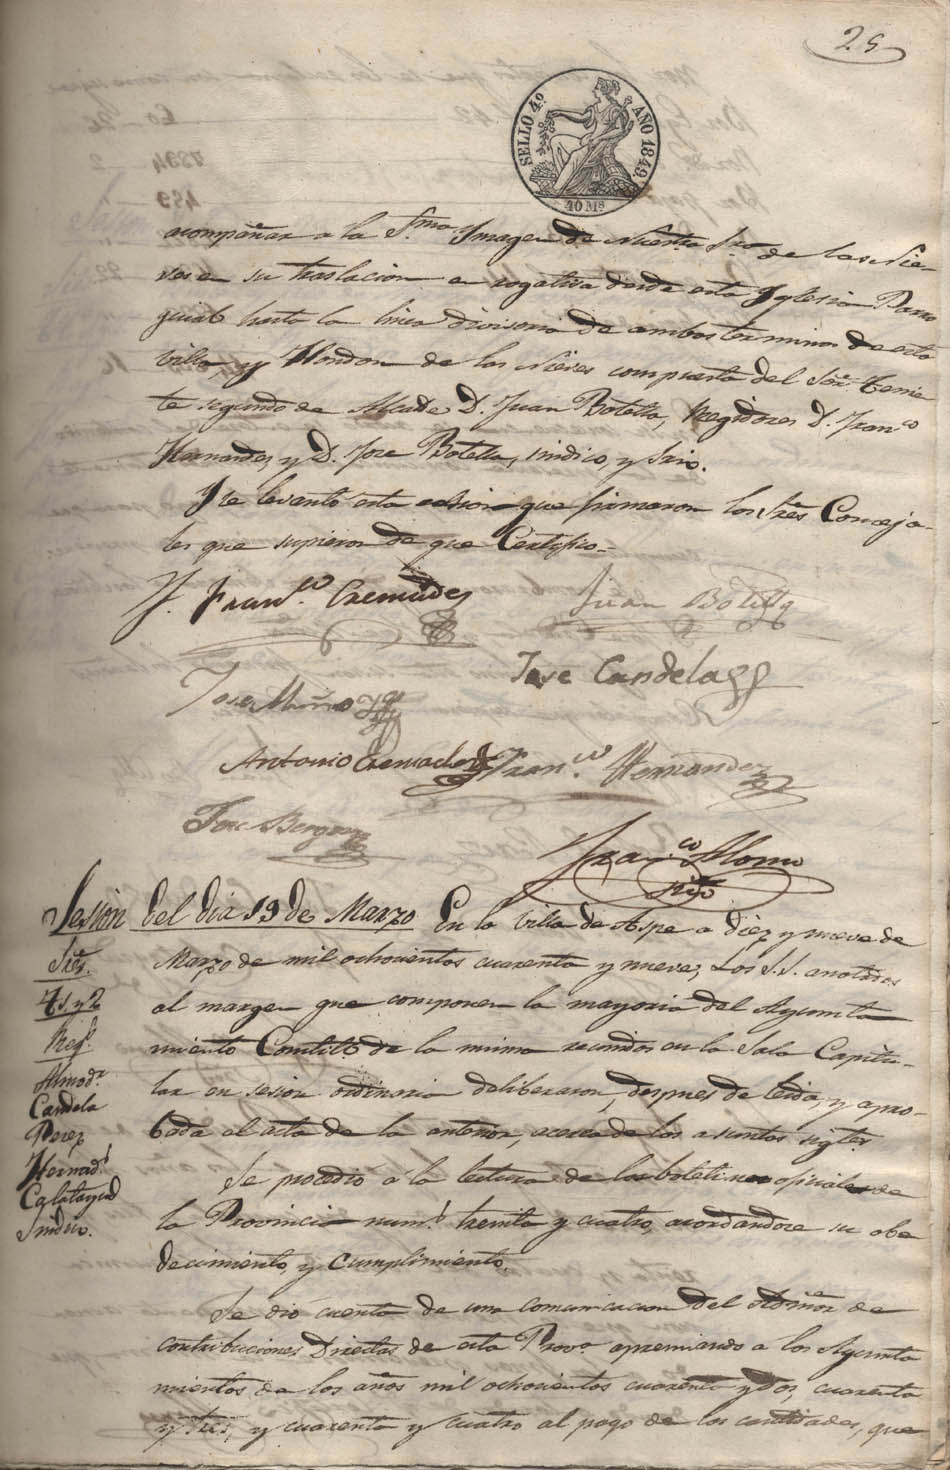 25
SELLO 4º AÑO 1849.
40 Ms
acompañar a la Sma. Imagen de Nuestra Sra. de las Nie-
ves en su traslacion en rogativa desde esta Yglesia Parro
quial hasta la linea divisoria de ambos terminos de esta
villa y Hondon de las Nieves compuesta del Sor. Tenie
te segundo de Alcade D. Juan Botella, Regidores D. Franco
Hernandez, y D. Jose Botella, sindico, y Srio.
Y se levantó esta sesion que firmaron los Sres Conceja-
les que supieron de que Certifico.
Franco. Cremades
Juan Botella
Jose Candela
Jose Muñoz
Antonio Cremades
Franco. Hernandez
Jose
Franco Alonso
Srio
Sesion del dia 19 de Marzo En la villa de Aspe a diez y nueve de
Marzo de mil ochocientos cuarenta y nueve, Los S.S. anotados
al margen que componen la mayoria del Ayunta
miento Constitl. de la misma reunidos en la Sala Capitu-
lar en sesion ordinaria deliberaron, despues de leida, y apro-
bada el acta de la anterior, acerca de los asuntos sigtes.
Se procedio á la lectura de los boletines oficiales de
la Provincia numo. treinta y cuatro, acordandose su obe
decimiento, y cumplimiento.
Se dió cuenta de una comunicacion del Admor. de
contribuciones Directas de esta Prova. apremiando á los Ayunta
mientos de los años mil ochocientos cuarenta y dos, cuarenta
y tres, y cuarenta y cuatro al pago de las cantidades, que
Sres.
Regs.
Almodr.
Candela
Perez
Hernads.
Calatayud
Sindico.